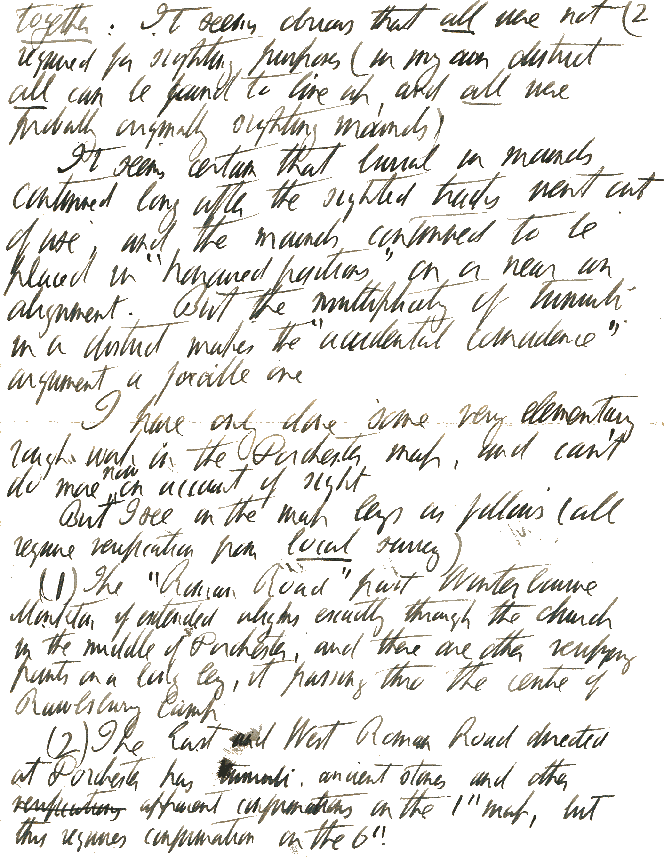 together. It seems obvious that all were not (2
required for sighting purposes (in my own district
all can be found to line up, and all were
probably originally sighting mounds)
It seems certain that burial in mounds
continued long after the sighted tracks went out
of use, and the mounds continued to be
placed in "honoured positions" on or near an
alignment. But the multiplicity of tumuli
in a district makes the "accidental coincidence"
argument a possible one
I have only done some very elementary
rough work in the Dorchester map, and can't
do more now on account of sight
But I see on the map leys as follows (all
require verification from local survey)
(1) The "Roman Road" past Winterbourne
Monkton if extended aligns exactly through the church
in the middle of Dorchester, and there are other verifying
points on a long ley, it passing thro the centre of
Rawlsbury Camp
(2) The East and West Roman Road directed
at Dorchester has tumuli, ancient stones and other
verifications apparent confirmations on the 1" map, but
this requires confirmation on the 6".